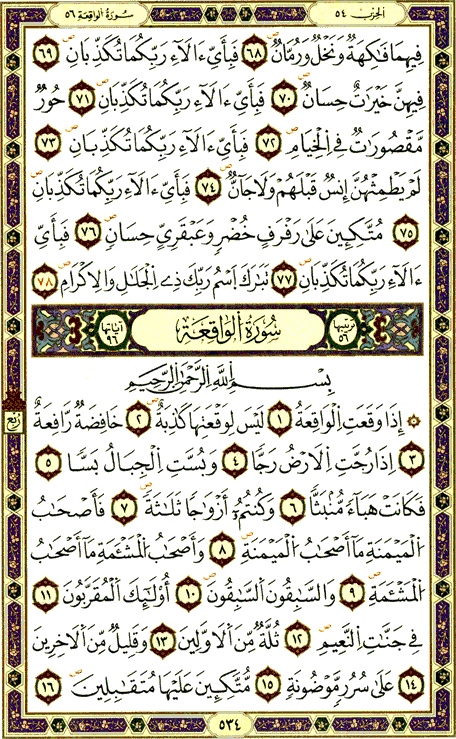 سُورَةُ الْوَاقِعَةِ ٥٦
الحِزْب ٥٤
فِيهِمَا فَاكِهَةٌ وَنَخْلٌ وَرُمَّانٌ ۝٦٨ فَبِأَيِّ ءَالَآءِ رَبِّكُمَا تُكَذِّبَانِ ۝٦٩
فِيهِنَّ خَيْرَٰتٌ حِسَانٌ ۝٧٠ فَبِأَيِّ ءَالَآءِ رَبِّكُمَا تُكَذِّبَانِ ۝٧١ حُورٌ
مَّقْصُورَٰتٌ فِي الْخِيَامِ ۝٧٢ فَبِأَيِّ ءَالَآءِ رَبِّكُمَا تُكَذِّبَانِ ۝٧٣
لَمْ يَطْمِثْهُنَّ إِنسٌ قَبْلَهُمْ وَلَا جَآنٌّ ۝٧٤ فَبِأَيِّ ءَالَآءِ رَبِّكُمَا تُكَذِّبَانِ
۝٧٥ مُتَّكِـِٔينَ عَلَىٰ رَفْرَفٍ خُضْرٍ وَعَبْقَرِيٍّ حِسَانٍ ۝٧٦ فَبِأَيِّ
ءَالَآءِ رَبِّكُمَا تُكَذِّبَانِ ۝٧٧ تَبَٰرَكَ اسْمُ رَبِّكَ ذِي الْجَلَٰلِ وَالْإِكْرَامِ ۝٧٨
ترتيبها ٥٦ سُورَةُ الْوَاقِعَةِ آياتها ٩٦
بِسْمِ اللَّهِ الرَّحْمَٰنِ الرَّحِيمِ
۞ إِذَا وَقَعَتِ الْوَاقِعَةُ ۝١ لَيْسَ لِوَقْعَتِهَا كَاذِبَةٌ ۝٢ خَافِضَةٌ رَّافِعَةٌ
۝٣ إِذَا رُجَّتِ الْأَرْضُ رَجًّا ۝٤ وَبُسَّتِ الْجِبَالُ بَسًّا ۝٥
فَكَانَتْ هَبَآءً مُّنۢبَثًّا ۝٦ وَكُنتُمْ أَزْوَٰجًا ثَلَٰثَةً ۝٧ فَأَصْحَٰبُ
الْمَيْمَنَةِ مَآ أَصْحَٰبُ الْمَيْمَنَةِ ۝٨ وَأَصْحَٰبُ الْمَشْـَٔمَةِ مَآ أَصْحَٰبُ
الْمَشْـَٔمَةِ ۝٩ وَالسَّٰبِقُونَ السَّٰبِقُونَ ۝١٠ أُو۟لَٰٓئِكَ الْمُقَرَّبُونَ ۝١١
فِي جَنَّٰتِ النَّعِيمِ ۝١٢ ثُلَّةٌ مِّنَ الْأَوَّلِينَ ۝١٣ وَقَلِيلٌ مِّنَ الْءَاخِرِينَ
۝١٤ عَلَىٰ سُرُرٍ مَّوْضُونَةٍ ۝١٥ مُّتَّكِـِٔينَ عَلَيْهَا مُتَقَٰبِلِينَ ۝١٦
ربع
٥٣٤